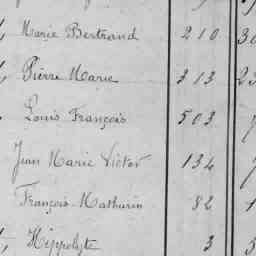 Marie Bertrand 210
Pierre Marie 313
Louis François 503
Jean Marie Victor 134
François Mathurin 82
Hippolyte 3